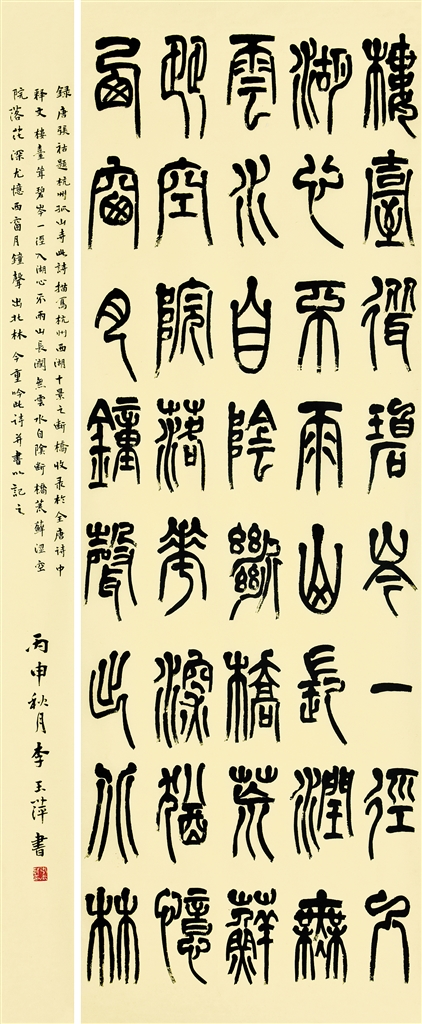 樓臺聳碧岑一徑入
湖心不雨山長潤無
雲水自陰斷橋荒蘚
澀空院落花深猶憶
西窗月鐘聲出北林
録唐張祜題杭州孤山寺此詩描寫杭州西湖十景之斷橋收录於全唐詩中
释文樓臺聳碧岑一徑入湖心不雨山長潤無雲水自陰斷橋荒蘚澀空
院落花深尤憶西窗月鐘聲出北林今重吟此诗并書以記之
丙申秋月李玉萍書